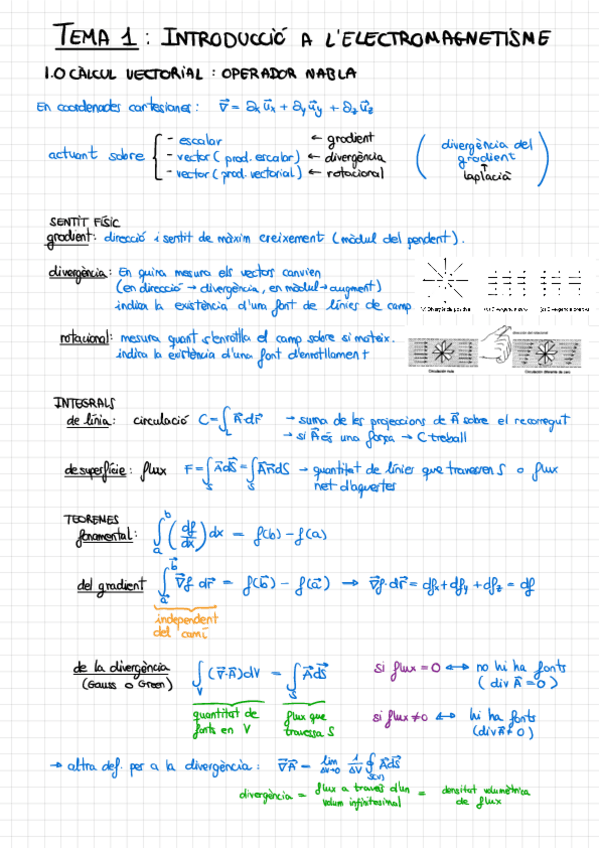 TEMA 1 : INTRODUCCIÓ A L'ELECTROMAGNETISME
1.0 CÀLCUL VECTORIAL : OPERADOR NABLA
En coordenades cartesianes : ∇⃗ = ∂ₓ u⃗ₓ + ∂ᵧ u⃗ᵧ + ∂_z u⃗_z
actuant sobre { - escalar ← gradient
- vector ( prod. escalar ) ← divergència
- vector ( prod. vectorial ) ← rotacional
( divergència del gradient ↑ laplacià )
SENTIT FÍSIC
gradient : direcció i sentit de màxim creixement ( mòdul del pendent ) .
divergència : En quina mesura els vectors canvien
(en direcció → divergència , en mòdul → augment)
indica la existència d'una font de línies de camp
rotacional : mesura quant s'enrotlla el camp sobre si mateix.
indica la existència d'una font d'enrotllament
Circulación nula
INTEGRALS
de línia : circulació C = ∫_L A⃗·dr⃗ → suma de les projeccions de A⃗ sobre el recorregut
→ si A⃗ és una força → C treball
de superfície : flux F = ∫_S A⃗dS⃗ = ∫_S A⃗n⃗dS → quantitat de línies que travessen S o flux
net d'aquestes
TEOREMES
fonamental : ∫_a^b (df/dx) dx = f(b) - f(a)
del gradient ∫_a⃗^b⃗ ∇⃗f dr⃗ = f(b⃗) - f(a⃗) → ∇⃗f·dr⃗ = dfₓ + dfᵧ + df_z = df
independent
del camí
de la divergència ∫_V (∇⃗·A⃗)dV = ∫_S A⃗dS⃗ si flux = 0 ↔ no hi ha fonts
(Gauss o Green) ( div A⃗ = 0 )
quantitat de flux que si flux ≠ 0 ↔ hi ha fonts
fonts en V travessa S (div A⃗ ≠ 0)
→ altra def. per a la divergència : ∇⃗A⃗ = lim_ΔV→0 1/ΔV ∮_S(V) A⃗dS⃗
divergència = flux a través d'un volum infinitesimal = densitat volumètrica de flux